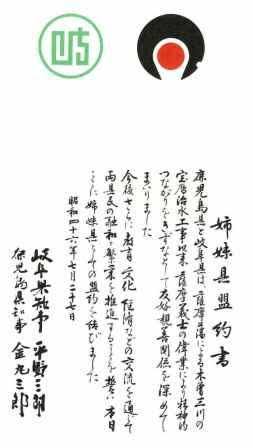 岐
姉妹県盟約書
鹿児島県と岐阜県は、薩摩藩による木曽三川の
宝暦治水工事以来、薩摩義士の偉業により精神的
つながりをきずなとして友好親善関係を深めて
まいりました
今後さらに教育、文化、経済などの交流を通じて
両県民の融和と繁栄を推進することを誓い、本日
ここに姉妹県としての盟約を結びました
昭和四十六年七月二十七日
岐阜県知事 平野三郎
鹿児島県知事 金丸三郎